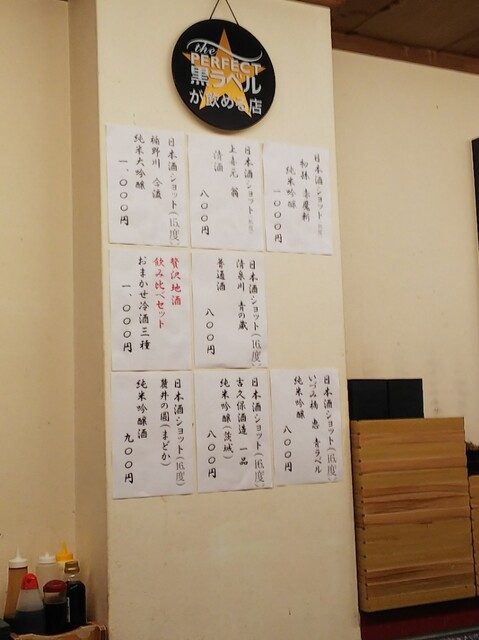 the
PERFECT
黒ラベル
が飲める店
日本酒ショット
純米吟醸
一、〇〇〇円
日本酒ショット
上喜元 翁
清酒
八〇〇円
日本酒ショット(16度)
楯野川 合流
純米大吟醸
一、〇〇〇円
日本酒ショット(16度)
清泉川 青の蔵
普通酒
八〇〇円
贅沢地酒
飲み比べセット
おまかせ冷酒三種
一、〇〇〇円
日本酒ショット(16度)
いづみ橋 恵 青ラベル
純米吟醸
八〇〇円
日本酒ショット(16度)
吉久保酒造 一品
純米吟醸(茨城)
八〇〇円
日本酒ショット(16度)
鷲の園(まどか)
純米吟醸酒
九〇〇円